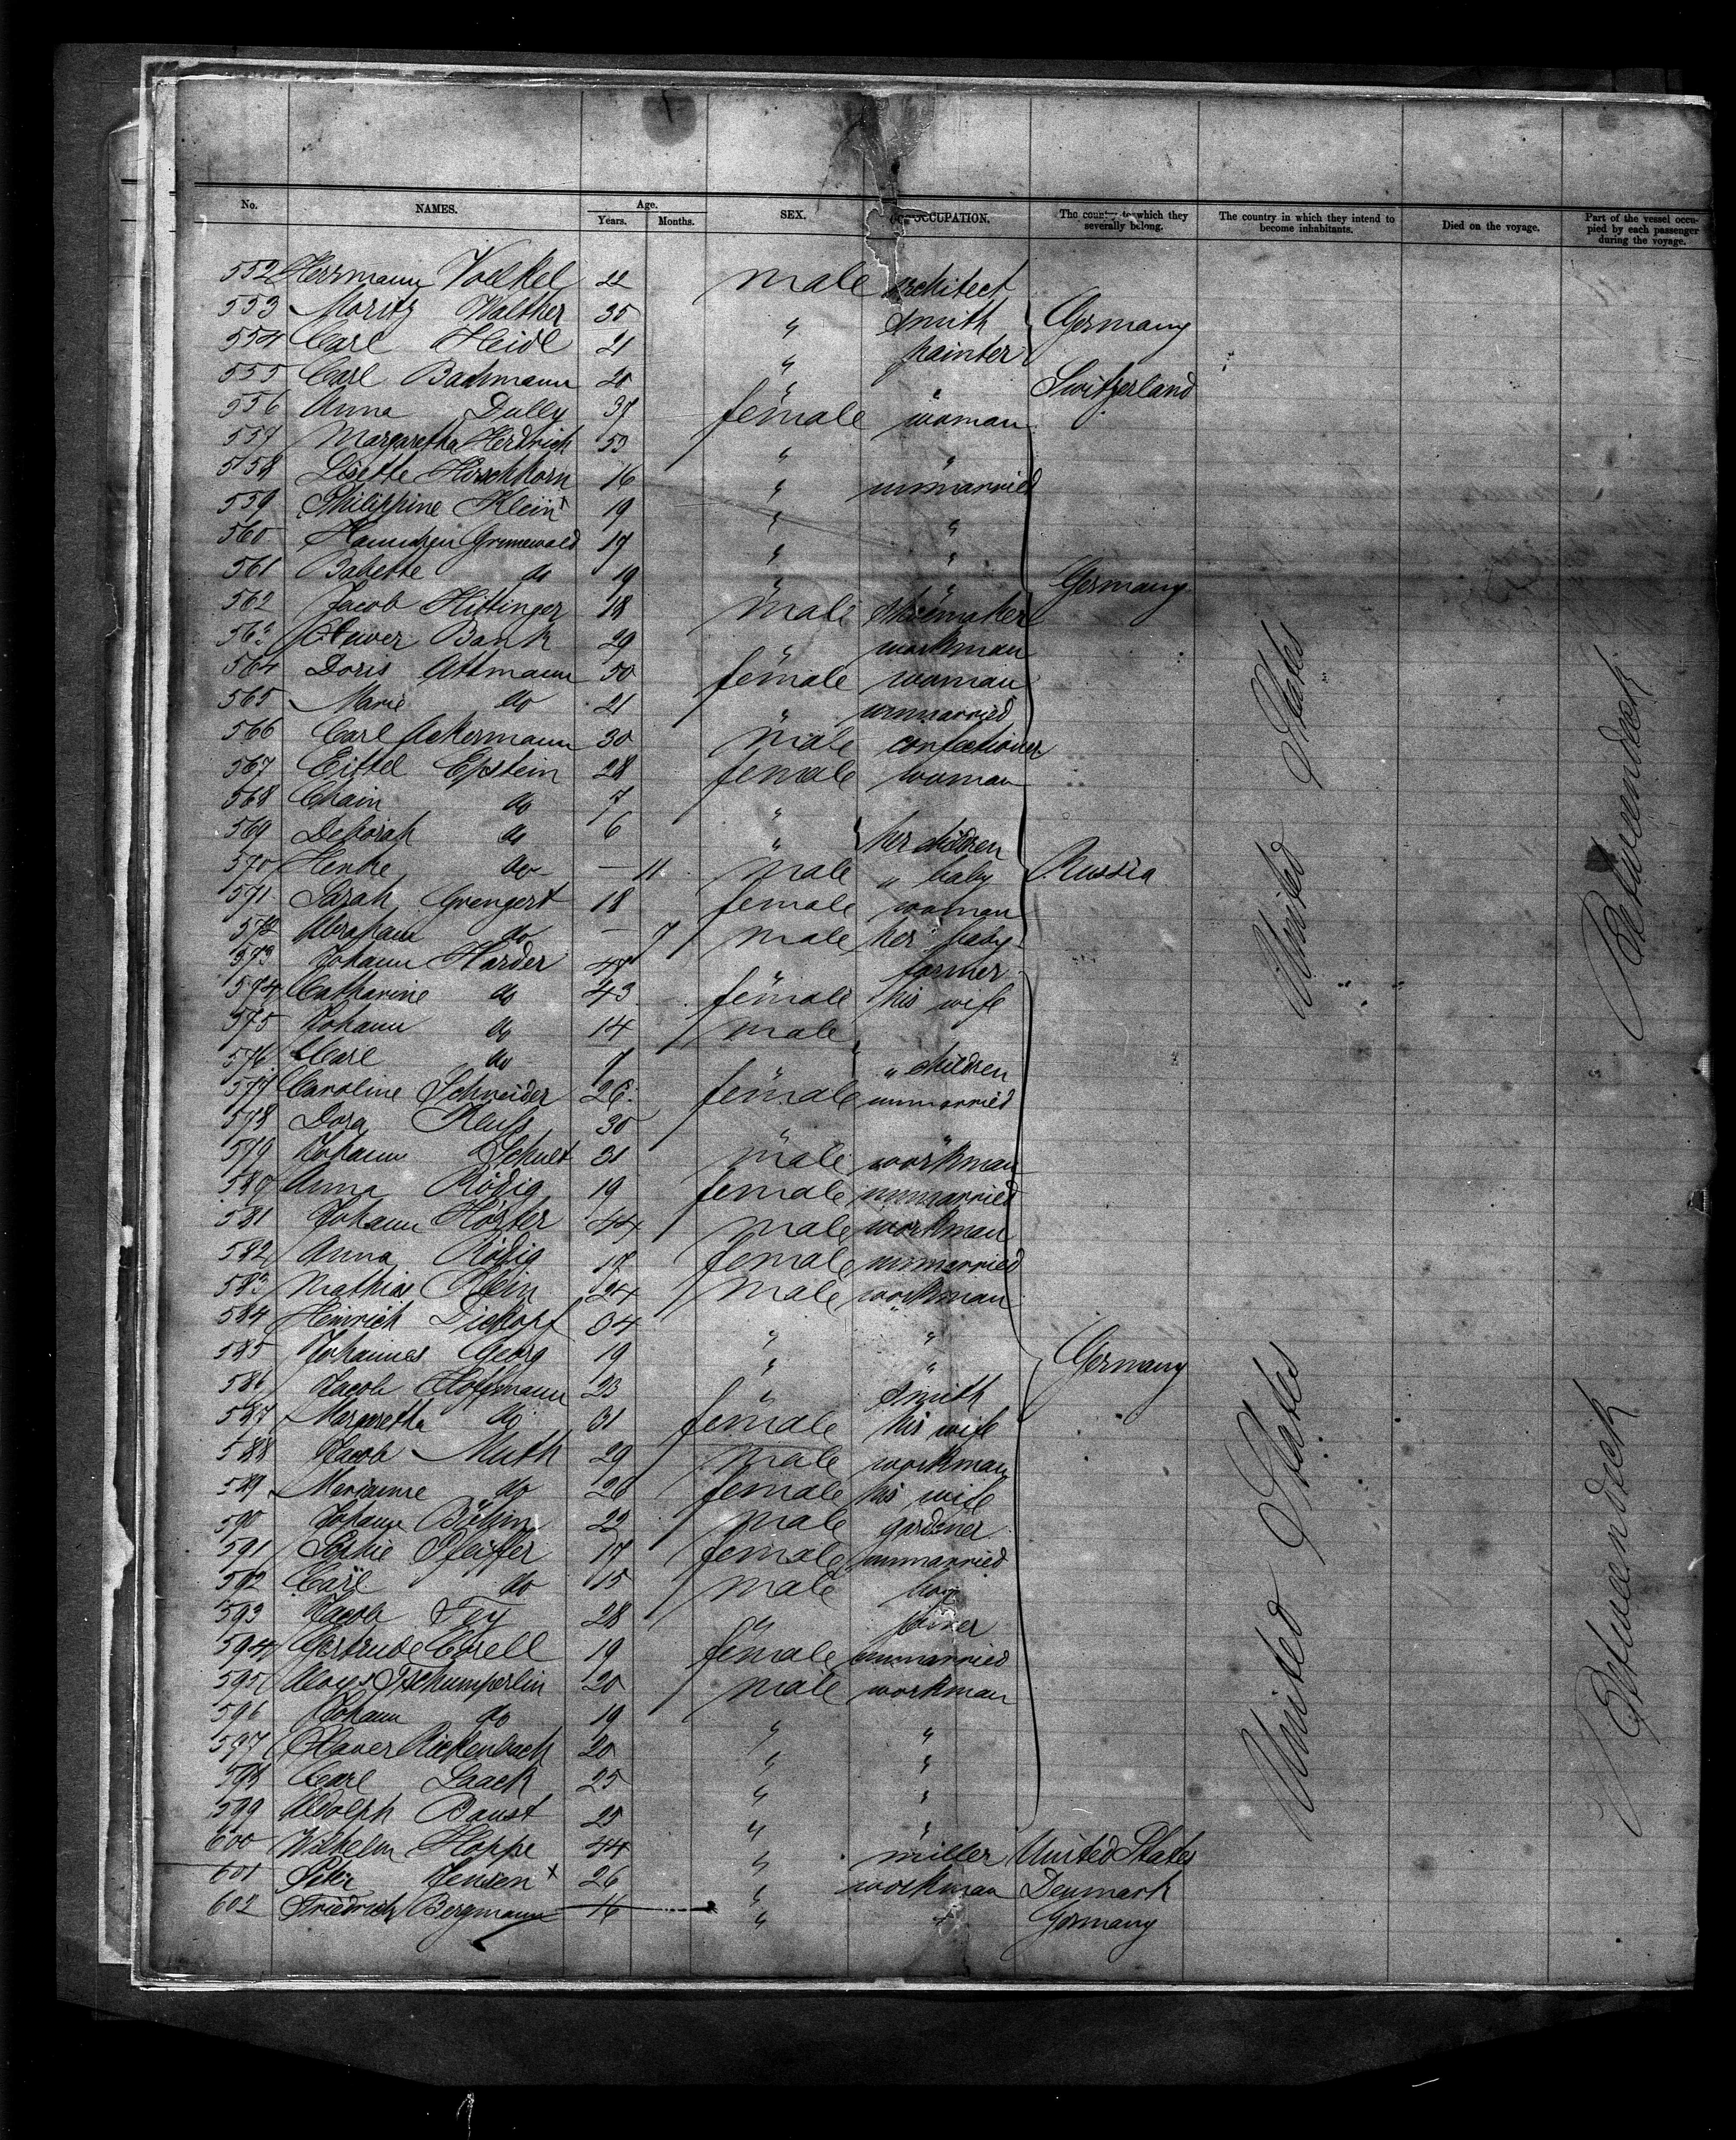 No. NAMES. Age. Years. Months. SEX. OCCUPATION. The country to which they severally belong. The country in which they intend to become inhabitants. Died on the voyage. Part of the vessel occupied by each passenger during the voyage.
552 Herrmann Voelkel 22 male architect
553 Moritz Walther 35 " smith Germany
554 Carl Heidl 21 " painter
555 Carl Bachmann 20 " " Switzerland
556 Anna Dully 37 female woman
557 Margaretha Herdrich 53 " "
558 Lisette Hirschhorn 16 " unmarried
559 Philippine Klein 19 " "
560 Hannchen Grunewald 17 " "
561 Babette do 19 " " Germany
562 Jacob Hittinger 18 male shoemaker
563 Oliver Bank 29 " workman
564 Doris Attmann 50 female woman
565 Marie do 21 " unmarried
566 Carl Ackermann 30 male confectioner
567 Eittel Epstein 28 female woman
568 Chain do 7 "
569 Deborah do 6 " her children
570 Henke do — 11 male " baby Russia
571 Sarah Grengert 18 female woman
572 Abraham do — 7 male her baby
573 Johann Harder 47 " farmer
574 Catharine do 43 female his wife
575 Johann do 14 male
576 Carl do 7 " " children
577 Caroline Schneider 26 female unmarried
578 Dora Reuß 30 " "
579 Johann Schult 31 male workman
580 Anna Rödig 19 female unmarried
581 Johann Hörter 44 male workman
582 Anna Rödig 17 female unmarried
583 Mathias Klein 24 male workman
584 Heinrich Diekopf 34 " "
585 Johannes Georg 19 " " Germany
586 Jacob Hoffmann 23 " smith
587 Margaretha do 31 female his wife
588 Jacob Muth 29 male workman
589 Marianne do 26 female his wife
590 Johann Böhm 22 male gardener
591 Sophie Pfeiffer 17 female unmarried
592 Carl do 15 male boy
593 Jacob Fey 28 " joiner
594 Gertrude Corell 19 female unmarried
595 Aloys Tschumperlin 20 male workman
596 Johann do 19 " "
597 Xaver Rickenbach 20 " "
598 Carl Laack 25 " "
599 Adolph Baust 25 " "
600 Wilhelm Hoppe 44 " miller United States
601 Peter Jensen x 26 " workman Denmark
602 Friedrich Bergmann 16 " " Germany
United States
Betweendeck
United States
Betweendeck